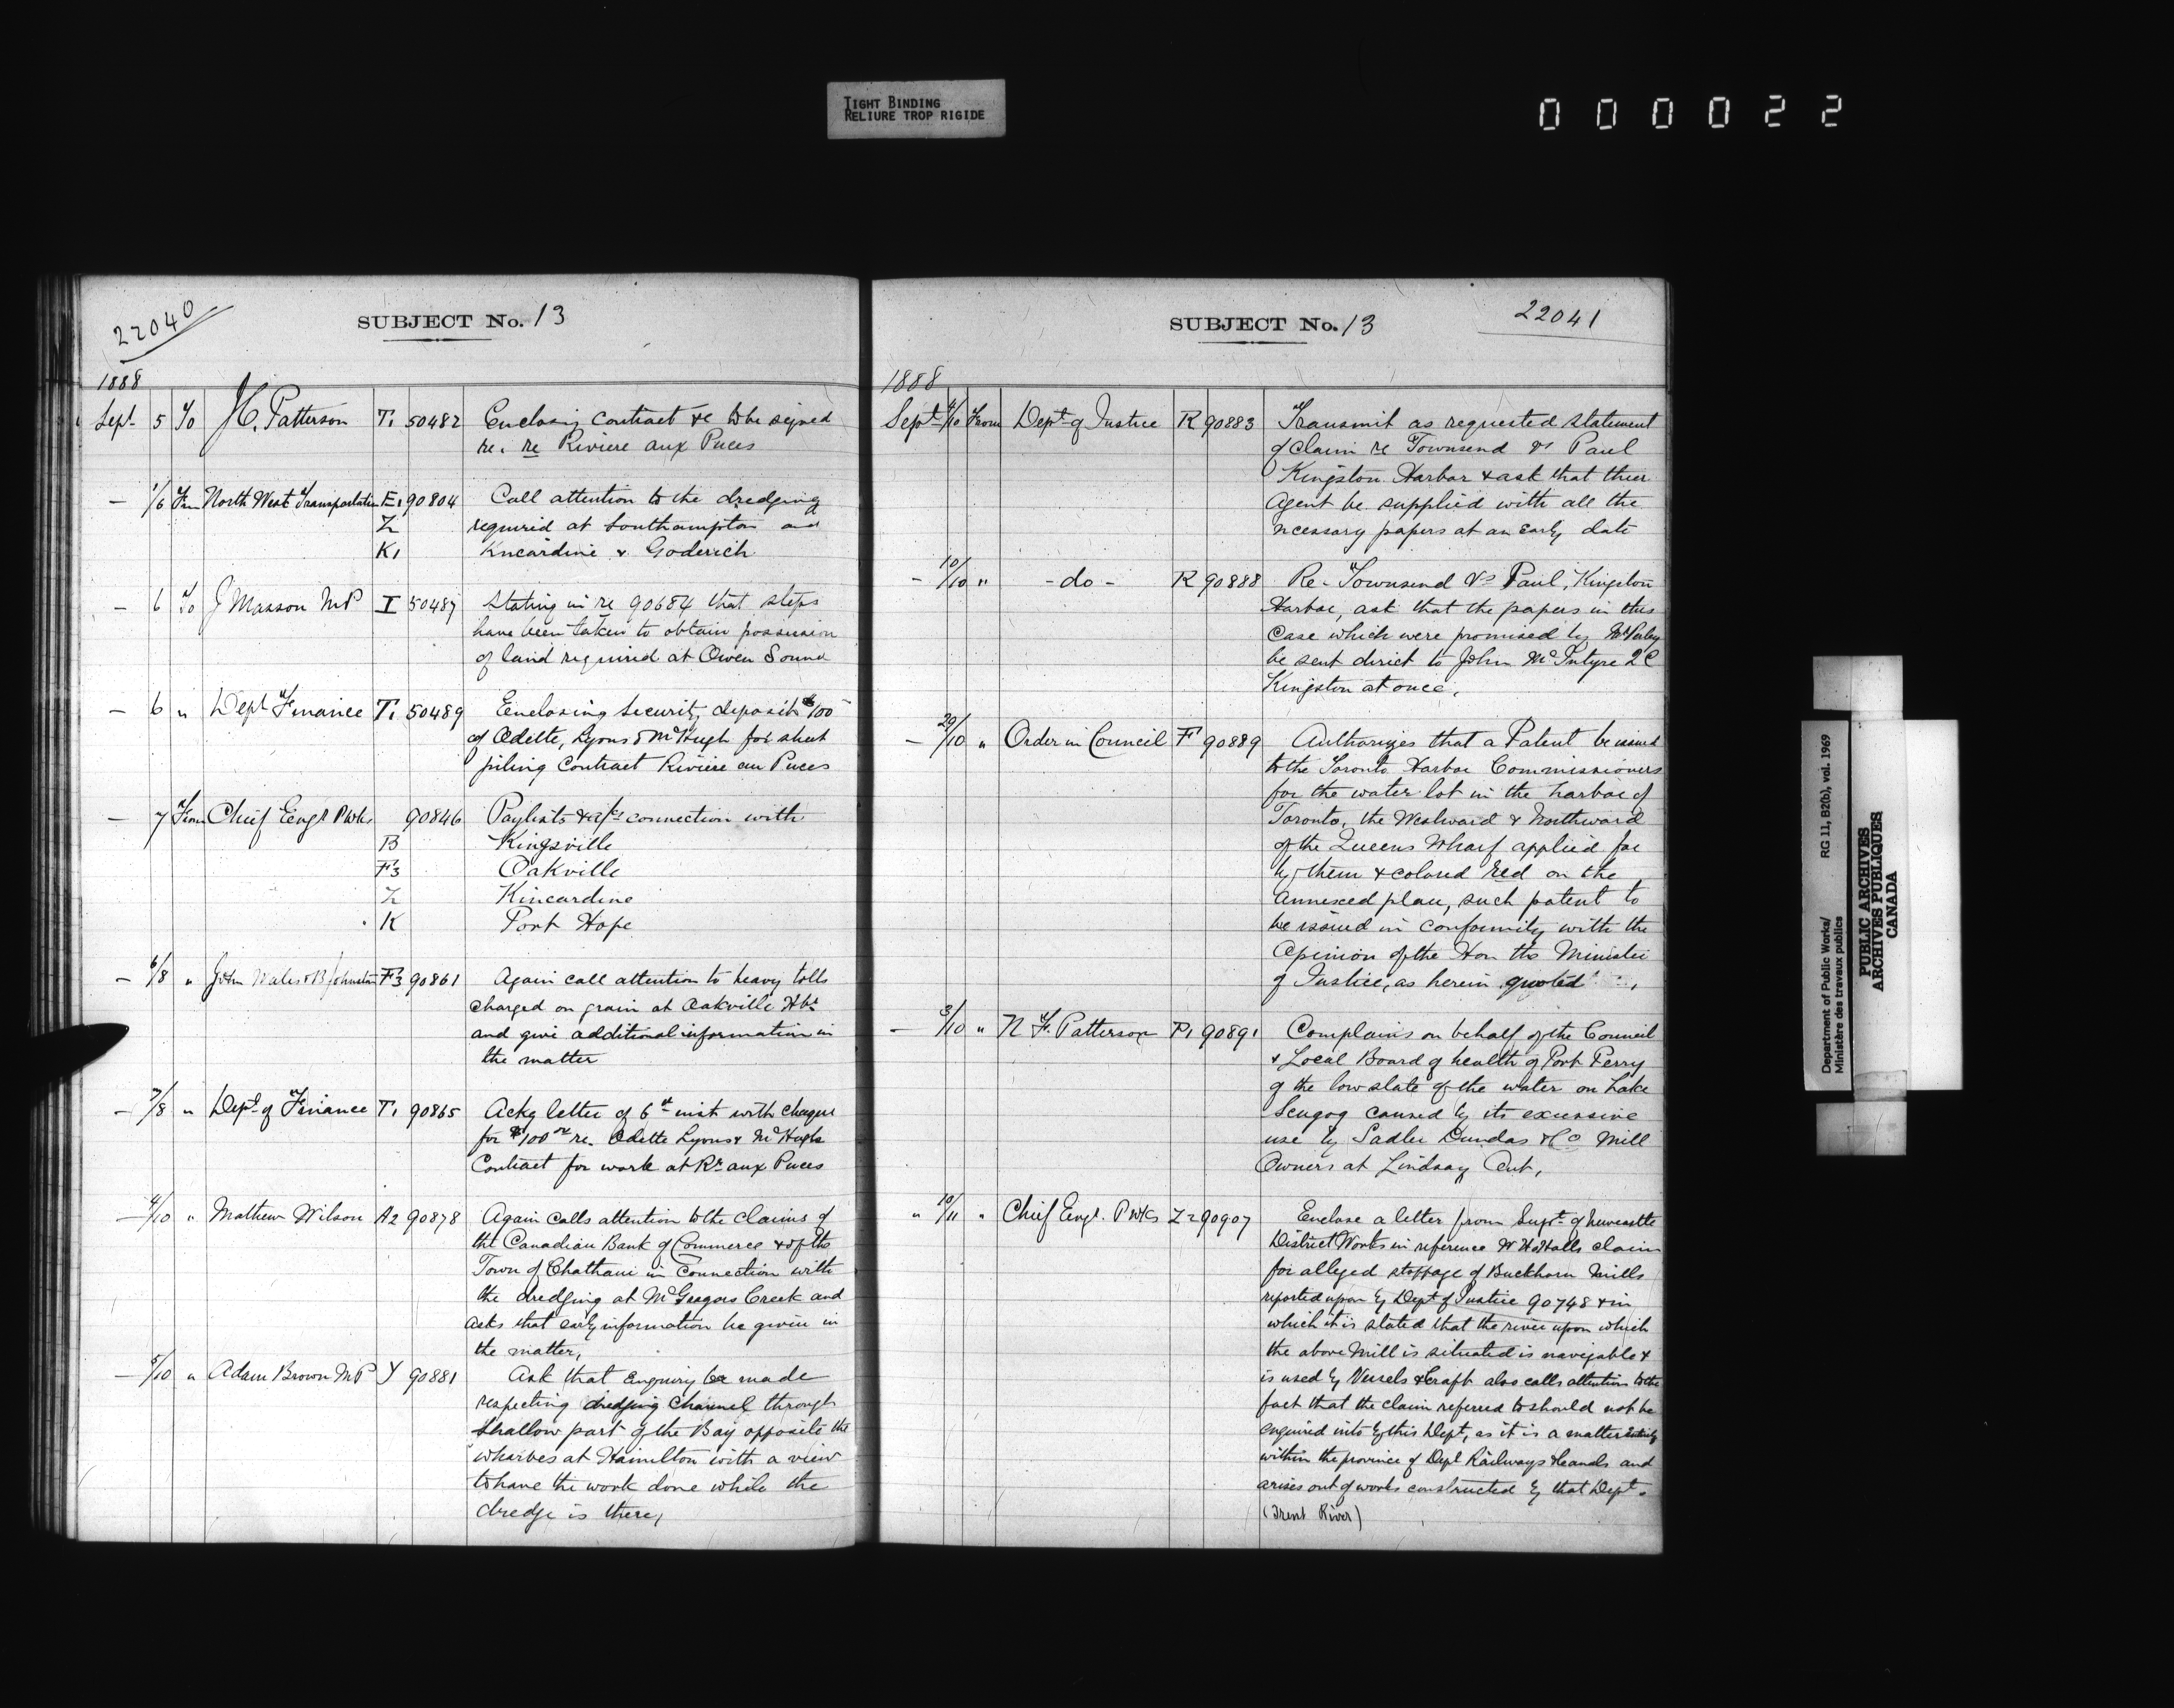 TIGHT BINDING
RELIURE TROP RIGIDE
0 0 0 0 2 2
22040
SUBJECT No. 13
1888
Sept 5 To J.C. Patterson T1 50482 Enclosing Contract &c to be signed
re. re Riviere aux Puces
— 1/6 From North West Transportation E1 90804 Call attention to the dredging
Z required at Southampton and
K1 Kncardine & Goderich
— 6 To J Masson MP I 50487 Stating in re 90684 that steps
have been taken to obtain possession
of land required at Owen Sound
— 6 " Dept Finance T1 50489 Enclosing Security deposit $100
of Odette, Lyons & McHugh for sheet
piling Contract Riviere au Puces
— 7 From Chief Engr PWks 90846 Paylists & a/cs connection with
B Kingsville
F3 Oakville
Z Kincardine
K Port Hope
— 6/8 " John Wales & B Johnston F3 90861 Again call attention to heavy tolls
charged on grain at Oakville Hbr
and give additional information in
the matter
— 7/8 " Dept of Finance T1 90865 Ackg letter of 6th inst with cheque
for $100 re. Odette Lyons & McHughs
Contract for work at Rr aux Puces
— 4/10 " Mathew Wilson A2 90878 Again calls attention to the claims of
the Canadian Bank of Commerce & of the
Town of Chatham in Connection with
the dredging at McGregors Creek and
asks that early information be given in
the matter,
— 5/10 " Adam Brown MP Y 90881 Ask that Enquiry be made
respecting dredging Channel through
Shallow part of the Bay opposite the
wharves at Hamilton with a view
to have the work done while the
dredge is there,
SUBJECT No. 13
22041
1888
Sept 4/10 From Dept of Justice R 90883 Transmit as requested statement
of Claim re Townsend vs Paul
Kingston Harbor & ask that their
Agent be supplied with all the
ncessary papers at an Early date
— 10/10 " - do - R 90888 Re - Townsend Vs Paul, Kingston
Harbor, ask that the papers in this
Case which were promised by Mr Perley
be sent direct to John McIntyre QC
Kingston at once,
— 29/10 " Order in Council F 90889 Authorizes that a Patent be issued
to the Toronto Harbor Commissioners
for the water lot in the harbor of
Toronto, the Westward & Northward
of the Queens Wharf applied for
by them & colored red on the
Annexed plan, such patent to
be issued in conformity with the
Opinion of the Hon the Minister
of Justice, as herein quoted
— 3/10 " N F. Patterson P1 90891 Complains on behalf of the Council
& Local Board of health of Port Perry
of the low state of the water on Lake
Scugog caused by its excessive
use by Sadler Dundas & Co Mill
Owners at Lindsay Ont,
" 10/11 " Chief Engr. PWks Z2 90907 Enclose a letter from Supt of Newcastle
District Works in reference W H Halls claim
for alleged stoppage of Buckhorn Mills
reported upon by Dept of Justice 90748 & in
which it is stated that the river upon which
the above Mill is situated is navigable &
is used by Vessels & Craft also calls attention to the
fact that the claim referred to should not be
enquired into by this Dept, as it is a matter entirely
within the province of Dept Railways & Canals and
arises out of works constructed by that Dept.
(Trent River)
Department of Public Works/ RG 11, B2(b), vol. 1969
Ministère des travaux publics
PUBLIC ARCHIVES
ARCHIVES PUBLIQUES
CANADA